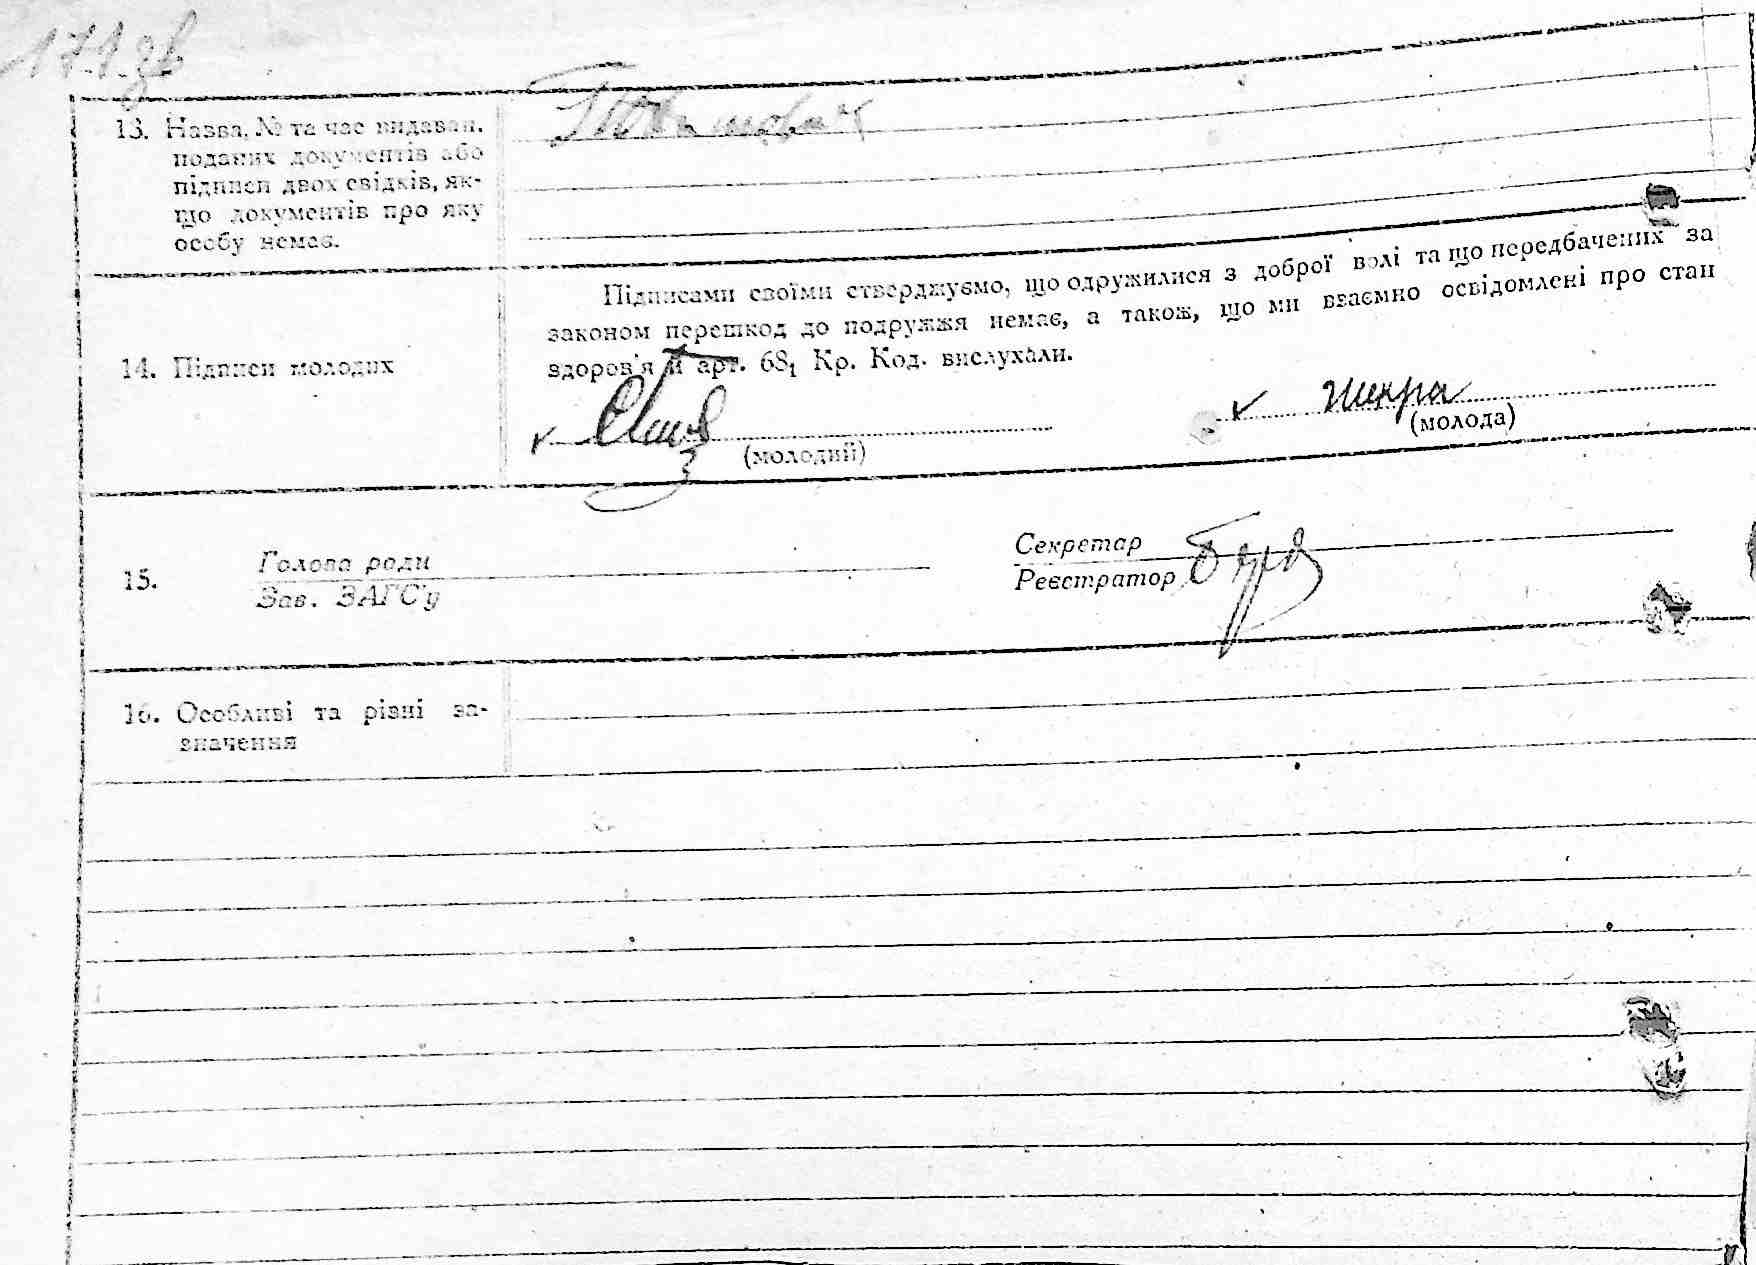 171 зв
13. Назва, № та час видаван.
поданих документів або
підписи двох свідків, як-
що документів про яку
особу немає.
Підписами своїми стверджуємо, що одружилися з доброї волі та що передбачених за
законом перешкод до подружжя немає, а також, що ми взаємно освідомлені про стан
здоров'я й арт. 68₁ Кр. Код. вислухали.
14. Підписи молодих
(молодий)
(молода)
15.
Голова ради
Зав. ЗАГС'у
Секретар
Реєстратор
16. Особливі та різні за-
значення